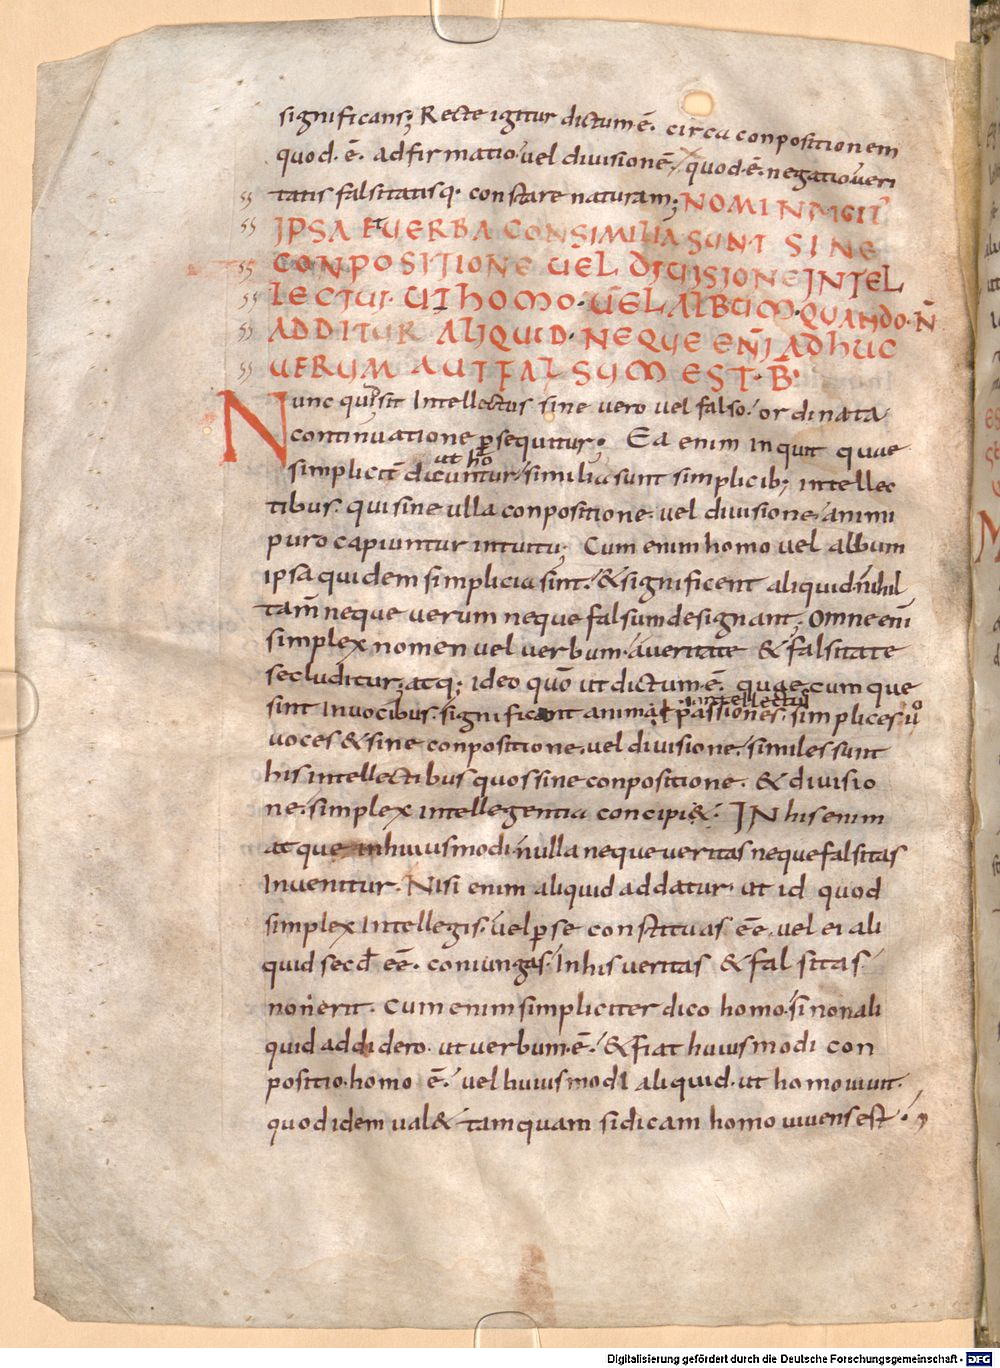 significans; Recte igitur dictum ē. circa conpositionem
quod. ē. adfirmatio. vel divisionē, quod. ē. negatio. veri
tatis falsitatisq. constare naturam; NOMINA IGIT̄
IPSA ET UERBA CONSIMILIA SUNT SINE
CONPOSITIONE UEL DIUISIONE INTEL
LECTUI. UT HOMO. UEL ALBUM. QUANDO. N̄
ADDITUR ALIQUID. NEQUE ENĪ ADHUC
UERUM AUT FALSUM EST. B̄.
Nunc qui sit Intellectus sine vero vel falso. ordinata
continuatione p̱sequitur; Ea enim inquit quae
ut hō
simplicit̄ dicuntur. similia sunt simplicib; intellec
tibus. qui sine ulla conpositione. vel divisione. animi
puro capiuntur intuitu; Cum enim homo vel album
ipsa quidem simplicia sint. & significent aliquid. nihil
tam̄ neque verum neque falsum designant; Omne enī
simplex nomen vel verbum. a veritate & falsitate
secluditur; atq; ideo quō ut dictum ē. quaecumque
intellectus
sint In vocibus. significant animae passiones. simplices ūo
voces & sine conpositione. vel divisione. similes sunt
his intellectibus quos sine conpositione. & divisio
ne. simplex intellegentia concipi&. IN his enim
atque in huiusmodi. nulla neque veritas neque falsitas
Invenitur. Nisi enim aliquid addatur. ut id quod
simplex Intellegis. vel p̱ se constituas eē. vel ei ali
quid secd̄ eē. coniungas. In his veritas & falsitas
non erit. Cum enim simpliciter dico homo. si non ali
quid addidero. ut verbum. ē. & fiat huiusmodi con
positio. homo ē. vel huiusmodi aliquid. ut homo vivit.
quod idem val& tamquam si dicam homo vivens est.
Digitalisierung gefördert durch die Deutsche Forschungsgemeinschaft - DFG